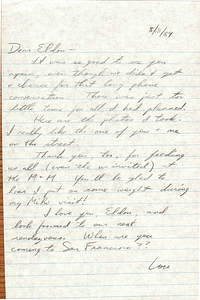 8/3/89
Dear Eldon —
It was so good to see you
again, even though we didn't get
a chance for that long phone
conversation. There was just too
little time for all I had planned.
Here are the photos I took.
I really like the one of you + me
on the street.
Thank you, too, for feeding
us all (even the uninvited) at
the M+M. You'll be glad to
hear I put on some weight during
my visit!
I love you, Eldon, and
look forward to our next
rendezvous. When are you
coming to San Francisco??
Love